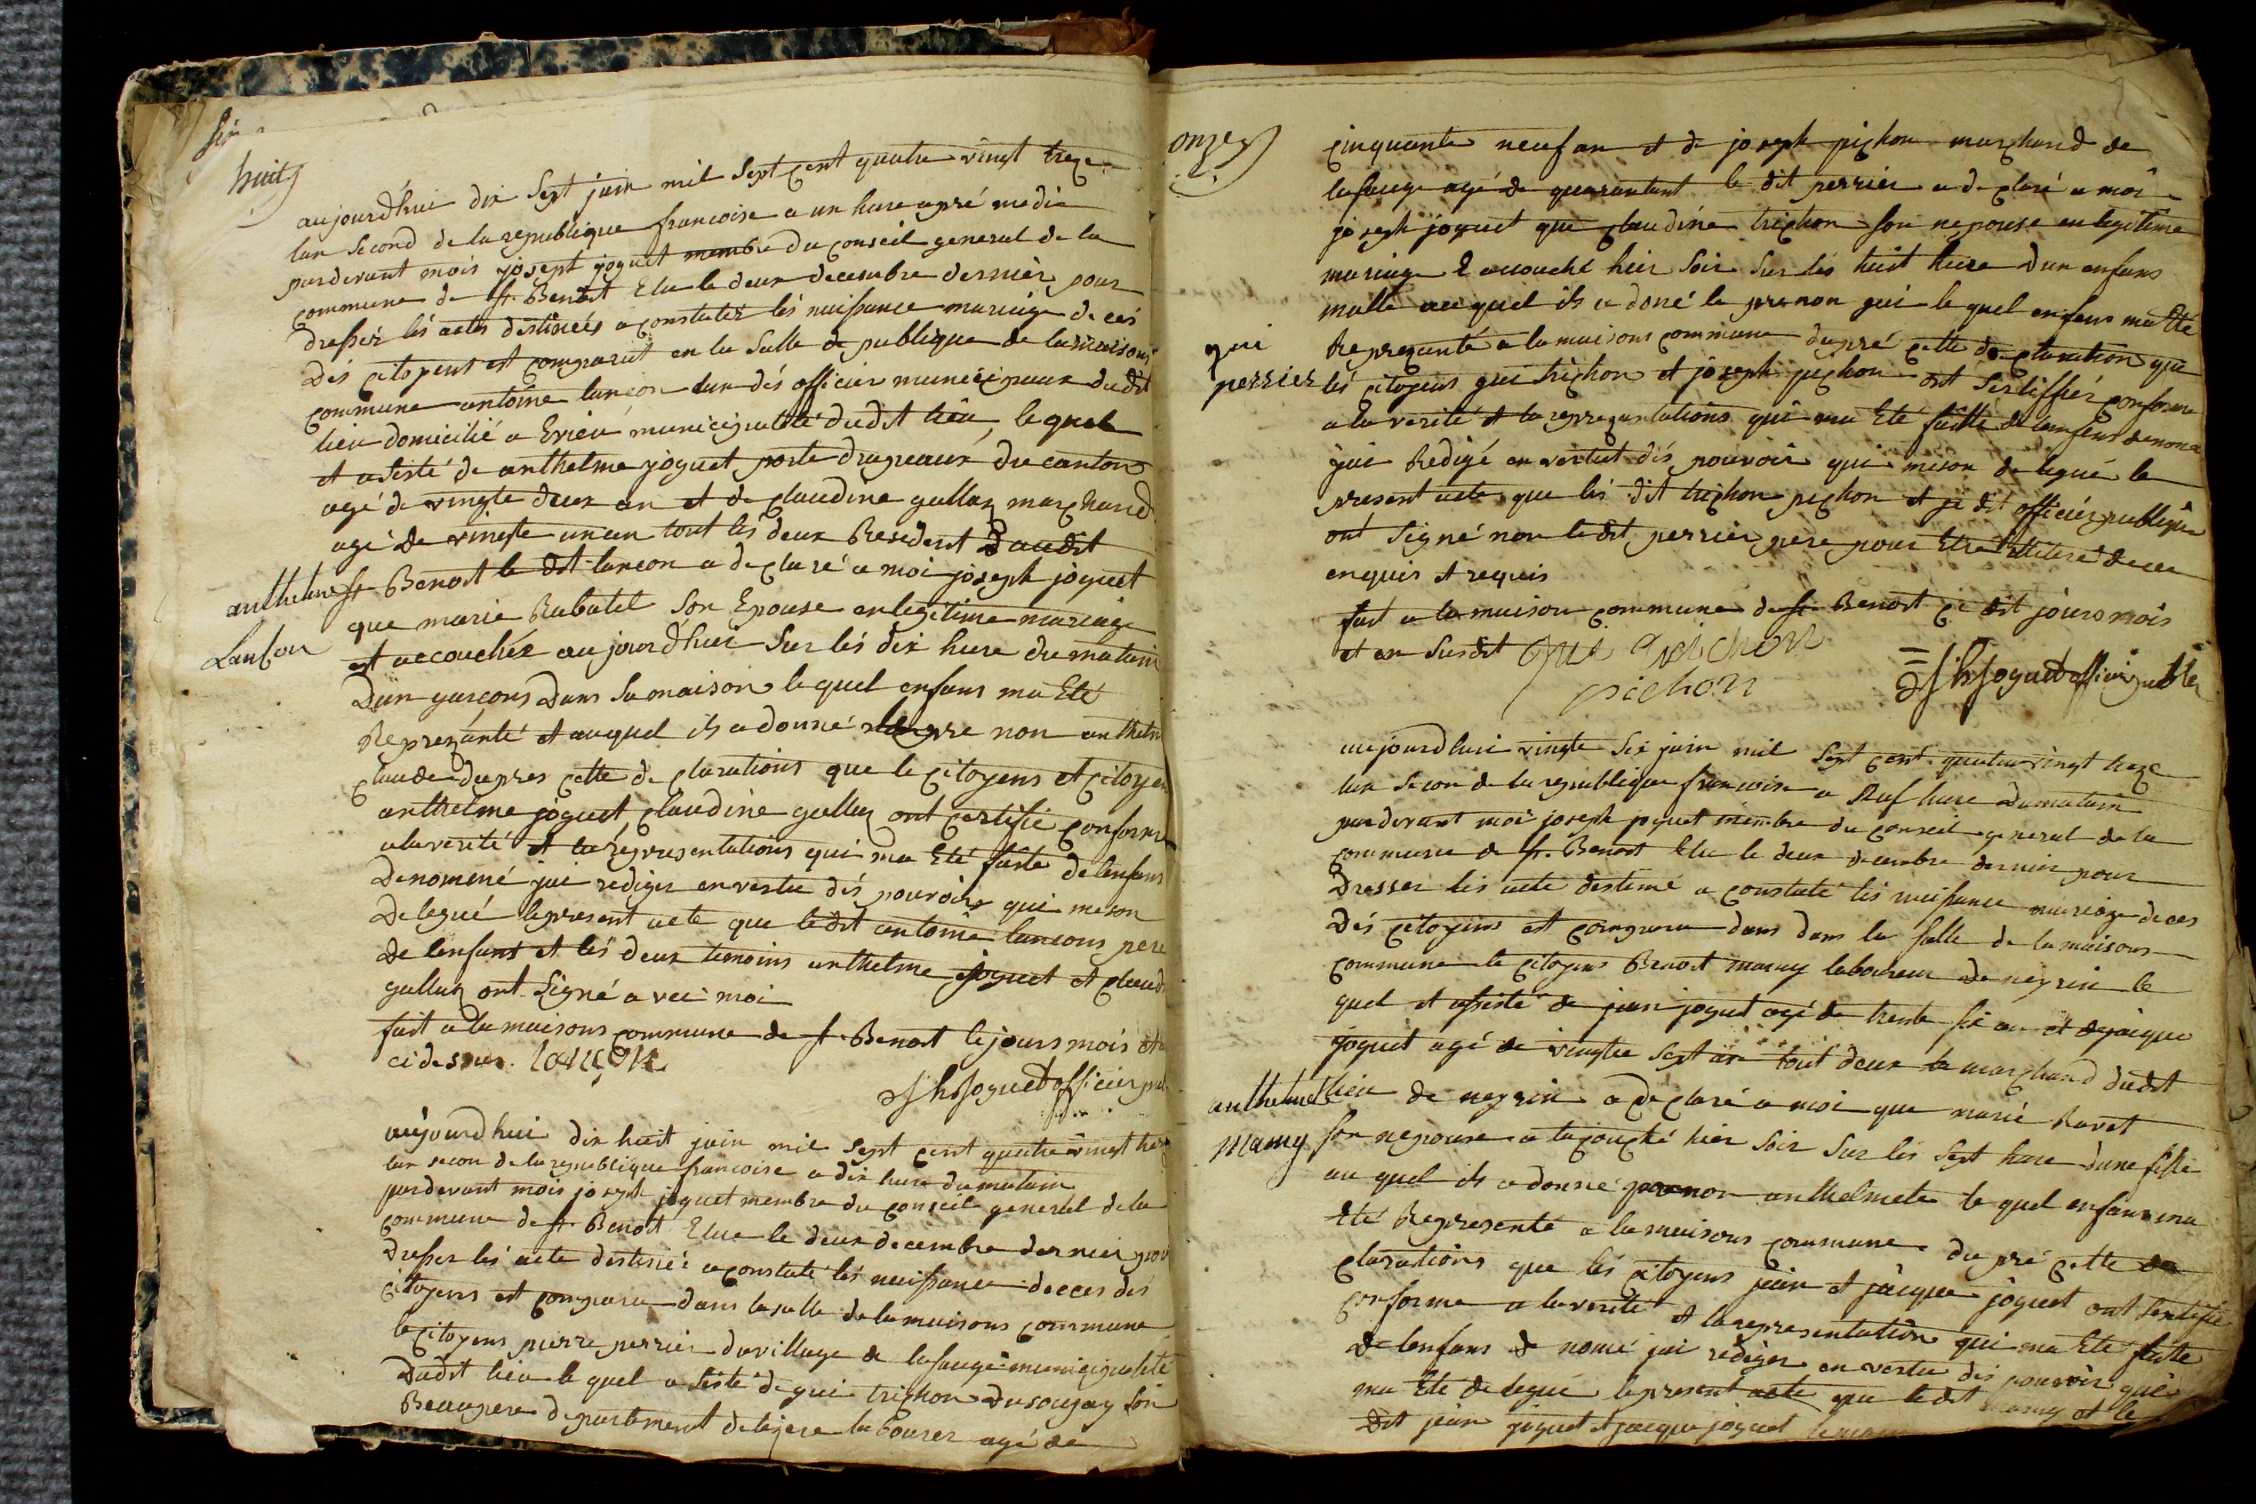 huit
aujourd'hui dix sept juin mil sept cent quatre vingt treze
lan second de la republique francoise a un hure apré medie
pardevant mois joseph joguet membre du conseil general de la
commune de st. Benoit Elu le deux decembre dernier pour
dresser lés actes destinéés a constater lés naissance mariage deces
Dés citoyens est comparut en la salle de publique de la maisons
commune antoine lançon lun dés officier municipaux dudit
lieu domicilié a Evieu municipalité dudit lieu, lequel
et asisté de anthelme joguet porte drapeaux du canton
agé de vingte deux an et de claudine gallay marchand
agé de vingte un an tout lés deux Resident Daudit
anthelme
st Benoit le dit lancon a declaré a moi joseph joguet
que marie Rabatel son Epouse en legitime mariage
Lancon
est accouchéé aujourd'hui sur lés dix hure du matain
Dun garcons Dans sa maison lequel enfans ma Eté
Reprezanté et auquel ils a donné le pre non anthelme
claude dapres cette declarations que le citoyens et citoyen
anthelme joguet, claudine gallay ont certifié conforme
a la verité et la representations qui ma Eté faite de lenfans
Denommé jai rediger en vertu dés pouvoirs qui meson
Delegué le present acte que ledit antoine lancons pere
de lenfant et lés deux temoins anthelme joguet et claud
gallay ont signé avec moi
fait a la maisons commune de st Benoit le jours mois et
ci dessus. lançon
jh Joguet officier pub
aujourd hui dix huit juin mil sept cent quatre vingt treze
lan secon de la republique francoise a dix hure du matain
pardevant mois joseph joguet membre du conseil general de la
commune de st. Benoit Elue le deux decembre dernier pour
Dresser lés acte destinéé a constaté lés naissance deces dés
citoyens est comparu dans la salle de la maisons commune
le citoyens pierre perrier du village de lafauge municipalité
Dudit lieu lequel asisté de gui trichon Du sougey son
Beaupere departement de lizere labourer agé de
onze
cinquante neuf an et de joseph pichon marchand de
lafauge agé de quarantant le dit perrier a declaré a moi
joseph joguet que claudine trichon son nepouse en legitime
mariage E accouché hier soir sur lés huit hure Dun enfans
malle auquel ils a doné le prenon gui lequel enfans ma Eté
gui
Reprezanté a la maisons commune dapré cette declaration que
perrier
lés citoyens gui trichon et joseph pichon ont sertiffiér conforme
a la verité et la reprezantations qui ma Eté faitte de lenfans denomé
jai Redigé en vertut dés pouvoir qui meson delegué le
present acte que lés dit trichon pichon et je dit officiér publique
ont signé non ledit perrier pere pour Etre illiteré de ce
enquis et requis
fait a la maison commune de st Benoit ce dit jours mois
et an susdit gui Trichon
pichon
jh Joguet officier publi
aujourdhui vingte six juin mil sept cent quatre vingt treze
lan secon de la republique francoise a neuf hure du matain
pardevant moi joseph joguet membre du conseil general de la
commune de st. Benoit Elu le deux decembre dernier pour
Dresser lés acte destiné a constaté lés naissance mariage deces
Dés citoyens est comparu dans dans la salle de la maisons
commune le citoyens Benoit mamy laboureur de neyrin le
quel et assisté de jean joguet agé de trente six an et de jacque
joguet agé de vingte sept an tout deux la marchand dudit
anthelmete
lieu de neyrin a declaré a moi que marie Ravet
mamy
son nepouse a lacouché hier soir sur lés sept hure dune fille
au quel ils a donné prenon anthelmete lequel enfans ma
Eté Representé a la maisons commune dapré cette de
clarations que lés citoyens jean et jacque joguet ont sertifié
conforme a la verité et la representation qui ma Eté faitte
de lenfans de nomé jai rediger en vertu dés pouvoir qui
ma Eté delegué le present acte que ledit mamy et le
Dit jean joguet et jacque joguet